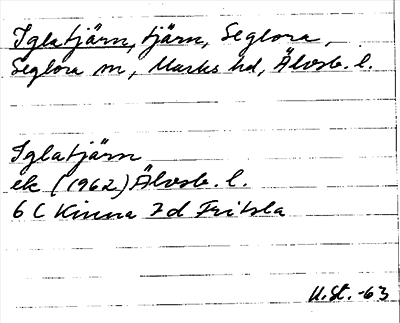 Iglatjärn, tjärn, Seglora,
Seglora sn, Marks hd, Älvsb. l.
Iglatjärn
ek (1962) Älvsb. l.
6 C Kinna 7d Fritsla
U.St. -63